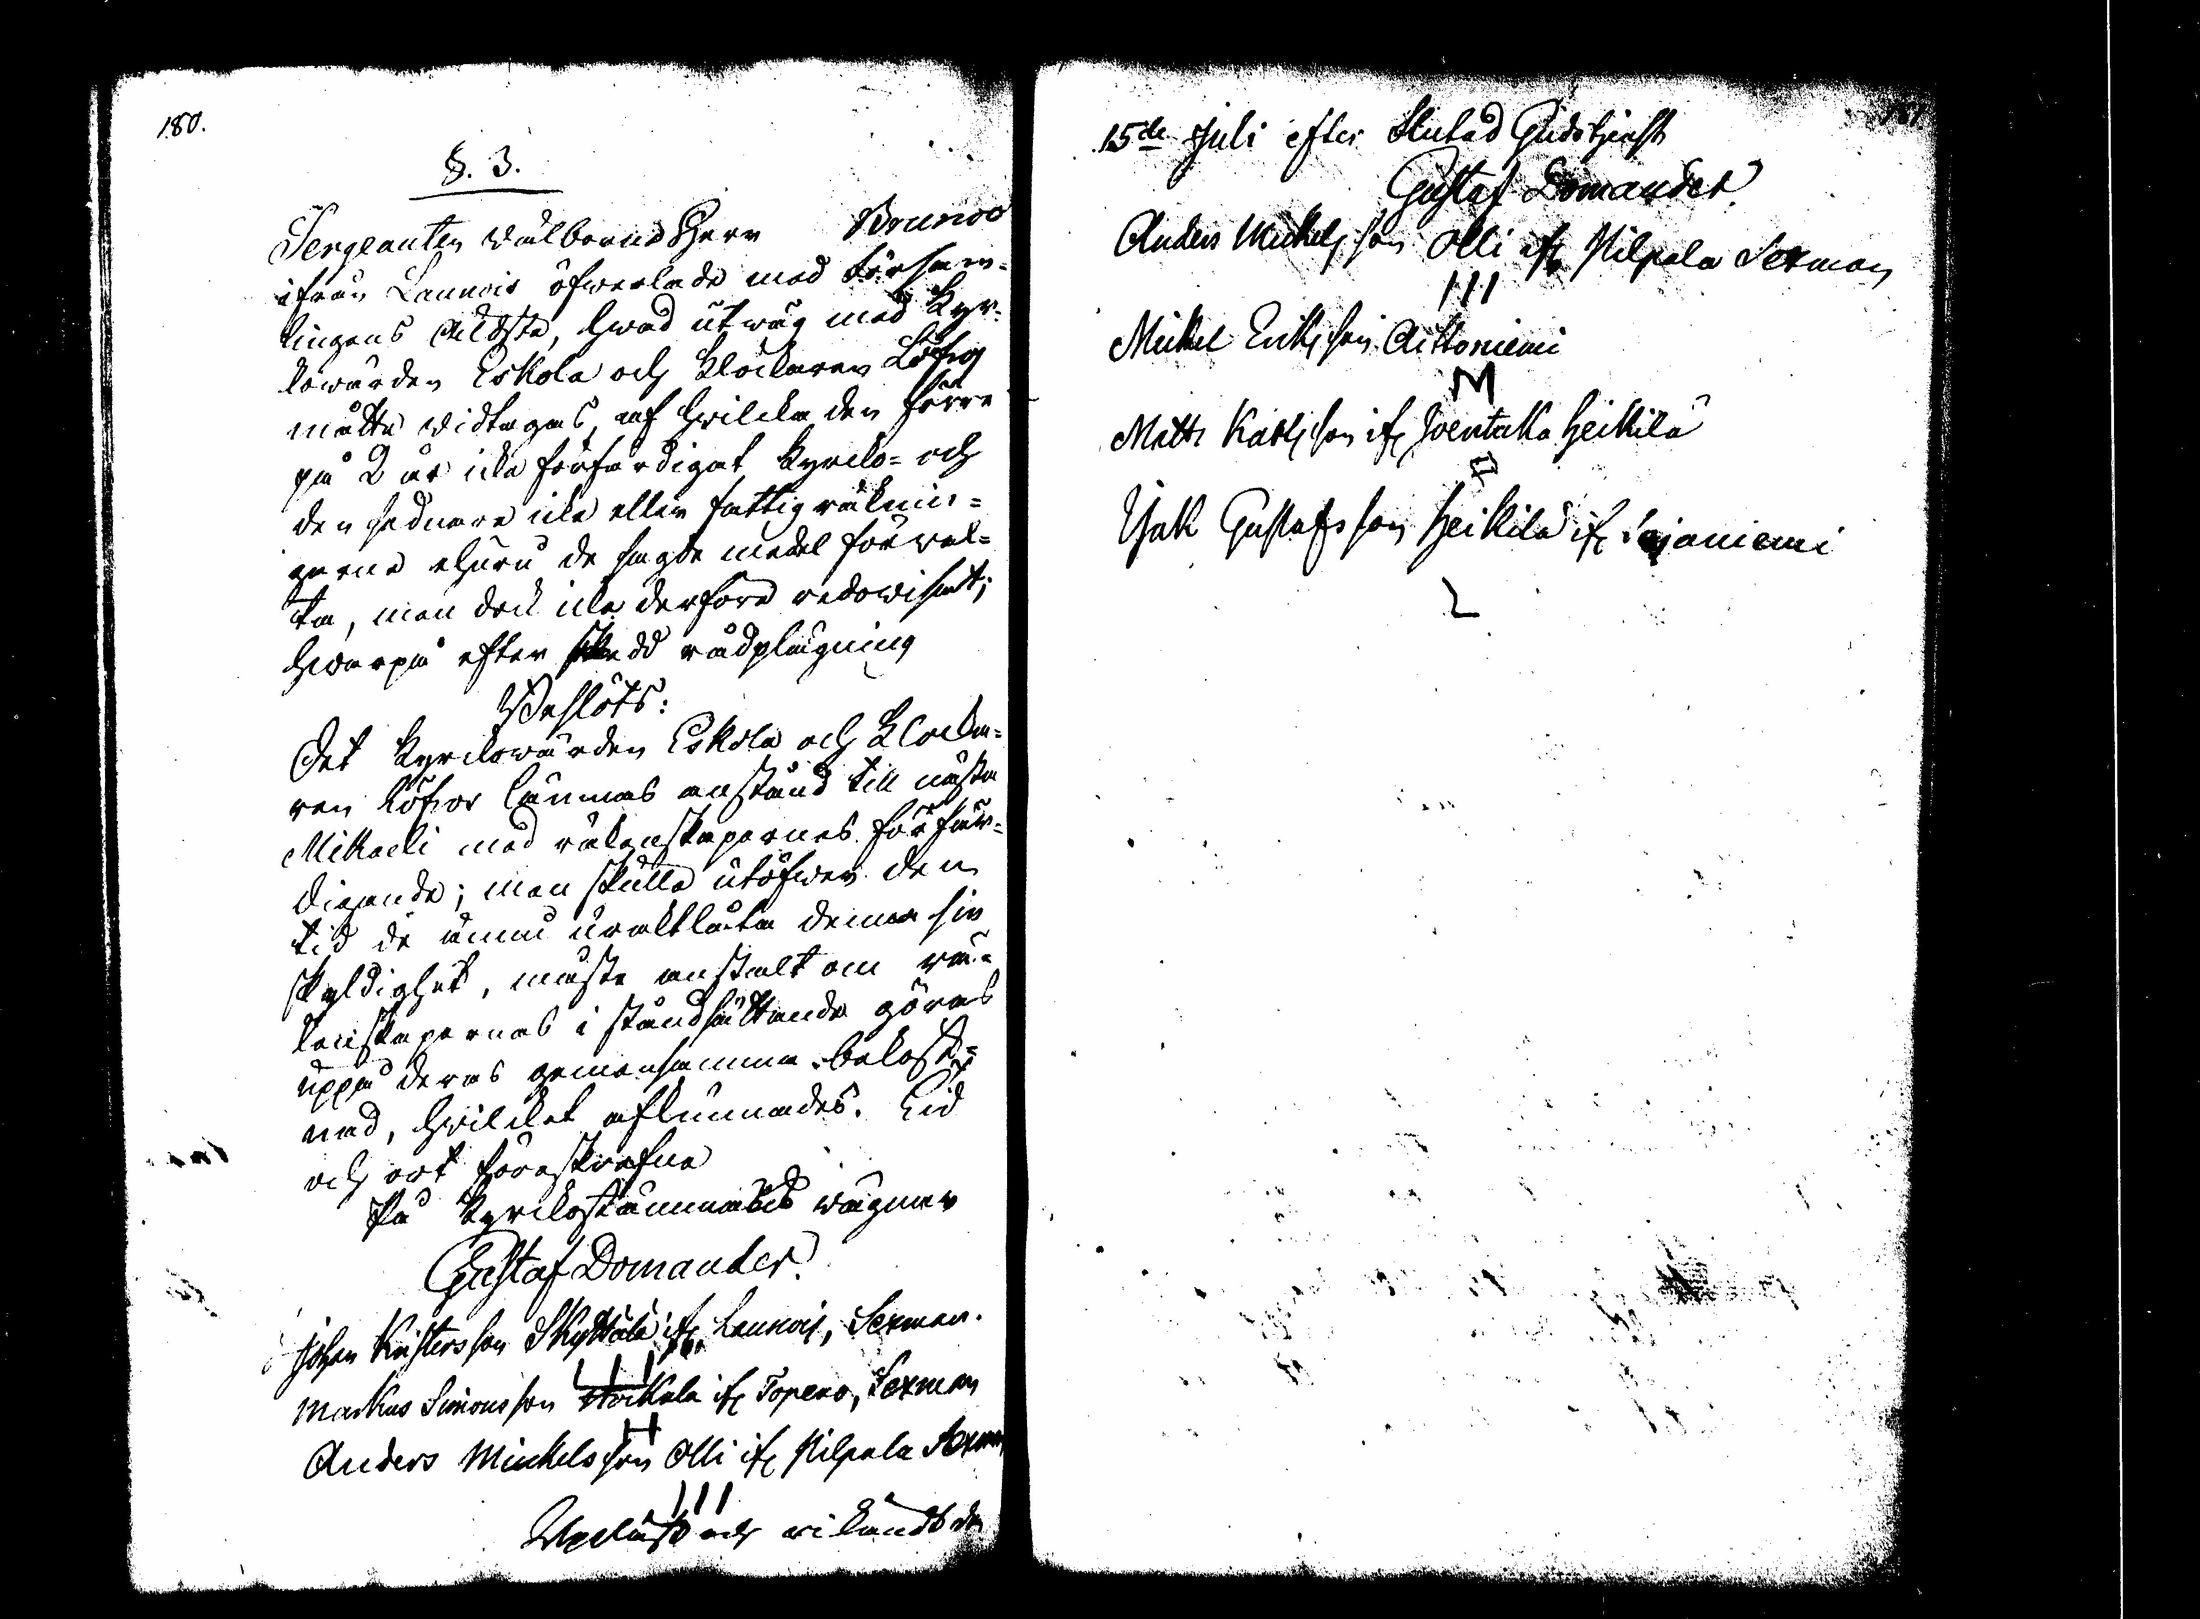 180.
§. 3.
Sergeanten Wälborne Herr Brunow
ifrån Launois öfwerlade med Försam-
lingens Äldste, hwad utwäg med Kyr-
kowärden Eskola och Klockaren Löfroos
måtte widtagas, af hwilka den förre
på 2 år icke förfärdigat Kyrko- och
den sednare icke eller fattigräknin-
garne ehuru de sagde medel förwal-
ta, men dock icke derföre redowisat;
hwarpå efter skedd rådplägning
Beslöts:
Det Kyrkowärden Eskola och Klocka-
ren Löfros lämnas anstånd till nästa
Mikaeli med räkenskapernes förfär-
digande; men skulle utöfwer den
tid de ännu uraktlåta denna sin
skyldighet, måste anstalt om rä-
kenskapernas i ståndsättande göras
uppå deras gemensamma bekost-
nad, hwilket afkunnades. Tid
och ort föreskrefne
På Kyrkostämmans wägnar
Gustaf Domander.
Johan Kristersson Skyttälä if. Launois, Sexman.
Markus Simonsson if. Topeno, Sexman
H
Anders Mickelsson Olli if. Pilpala Sexman
III
Upläst och wikändt den
181
15de Juli efter slutad Gudstjenst
Gustaf Domander.
Anders Mickelsson Olli if. Pilpala Sexman
III
Mickel Ericksson Aittoniemi
M
Matts Karlsson if. Joentaka Heikilä
Isak Gustafsson Heikilä if. Sajaniemi